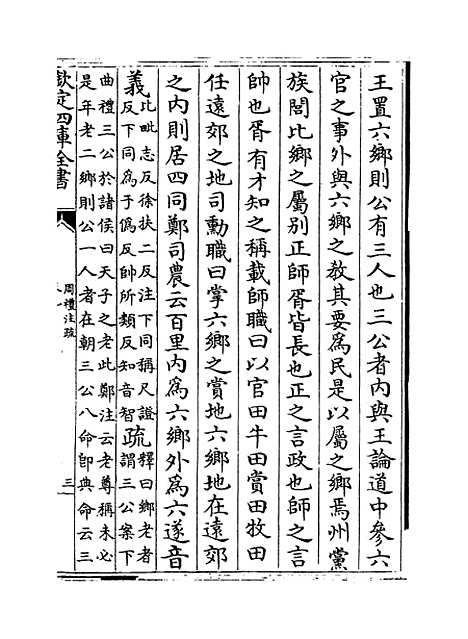 王置六鄉則公有三人也三公者内與王論道中參六
官之事外與六鄉之教其要為民是以屬之鄉焉州黨
族閭比鄉之屬别正師胥皆長也正之言政也師之言
帥也胥有才知之稱載師職曰以官田牛田賞田牧田
任逺郊之地司勳職曰掌六鄉之賞地六鄉地在逺郊
之内則居四同鄭司農云百里内為六鄉外為六遂音
義比毗志反徐扶二反注下同稱尺證
反下同為于偽反帥所類反知音智疏釋曰鄉老者
謂三公案下
曲禮三公於諸侯曰天子之老此鄭注云老尊稱未必
是年老二鄉則公一人者在朝三公八命即典命云三
欽定四庫全書
周禮注疏
三